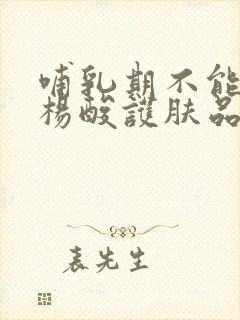 哺乳期不能
杨酸護肤品
表先生